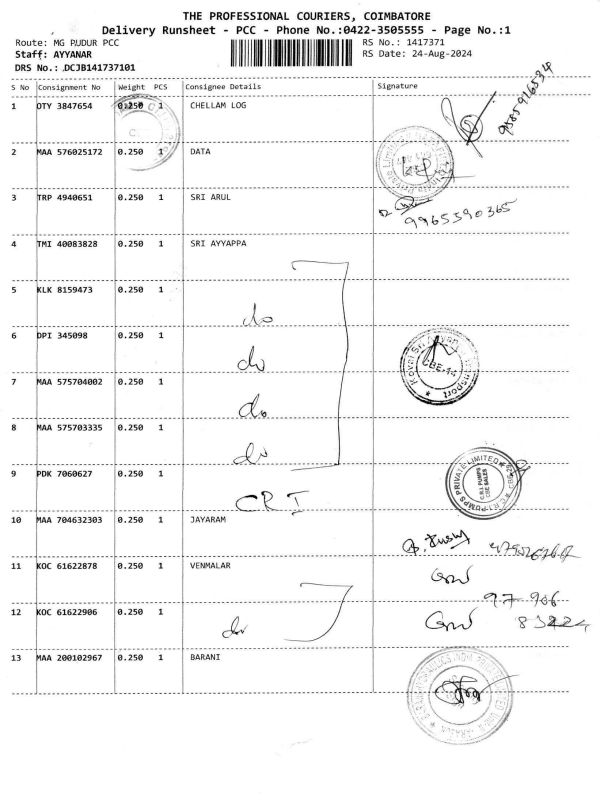 THE PROFESSIONAL COURIERS, COIMBATORE
Delivery Runsheet - PCC - Phone No.:0422-3505555 - Page No.:1
Route: MG PUDUR PCC
RS No.: 1417371
Staff: AYYANAR
RS Date: 24-Aug-2024
DRS No.: DCJB141737101
S No Consignment No Weight PCS Consignee Details Signature
9585916534
1 OTY 3847654 0.250 1 CHELLAM LOG
2 MAA 576025172 0.250 1 DATA
3 TRP 4940651 0.250 1 SRI ARUL
9965590365
4 TMI 40083828 0.250 1 SRI AYYAPPA
5 KLK 8159473 0.250 1
do
6 DPI 345098 0.250 1
do
CBE-14
7 MAA 575704002 0.250 1
do
8 MAA 575703335 0.250 1
do
9 PDK 7060627 0.250 1
CRI
C.R.I PUMPS PRIVATE LIMITED
C.R.I PUMPS
CBE SALES
10 MAA 704632303 0.250 1 JAYARAM
11 KOC 61622878 0.250 1 VENMALAR
97-906
12 KOC 61622906 0.250 1
do
83224
13 MAA 200102967 0.250 1 BARANI